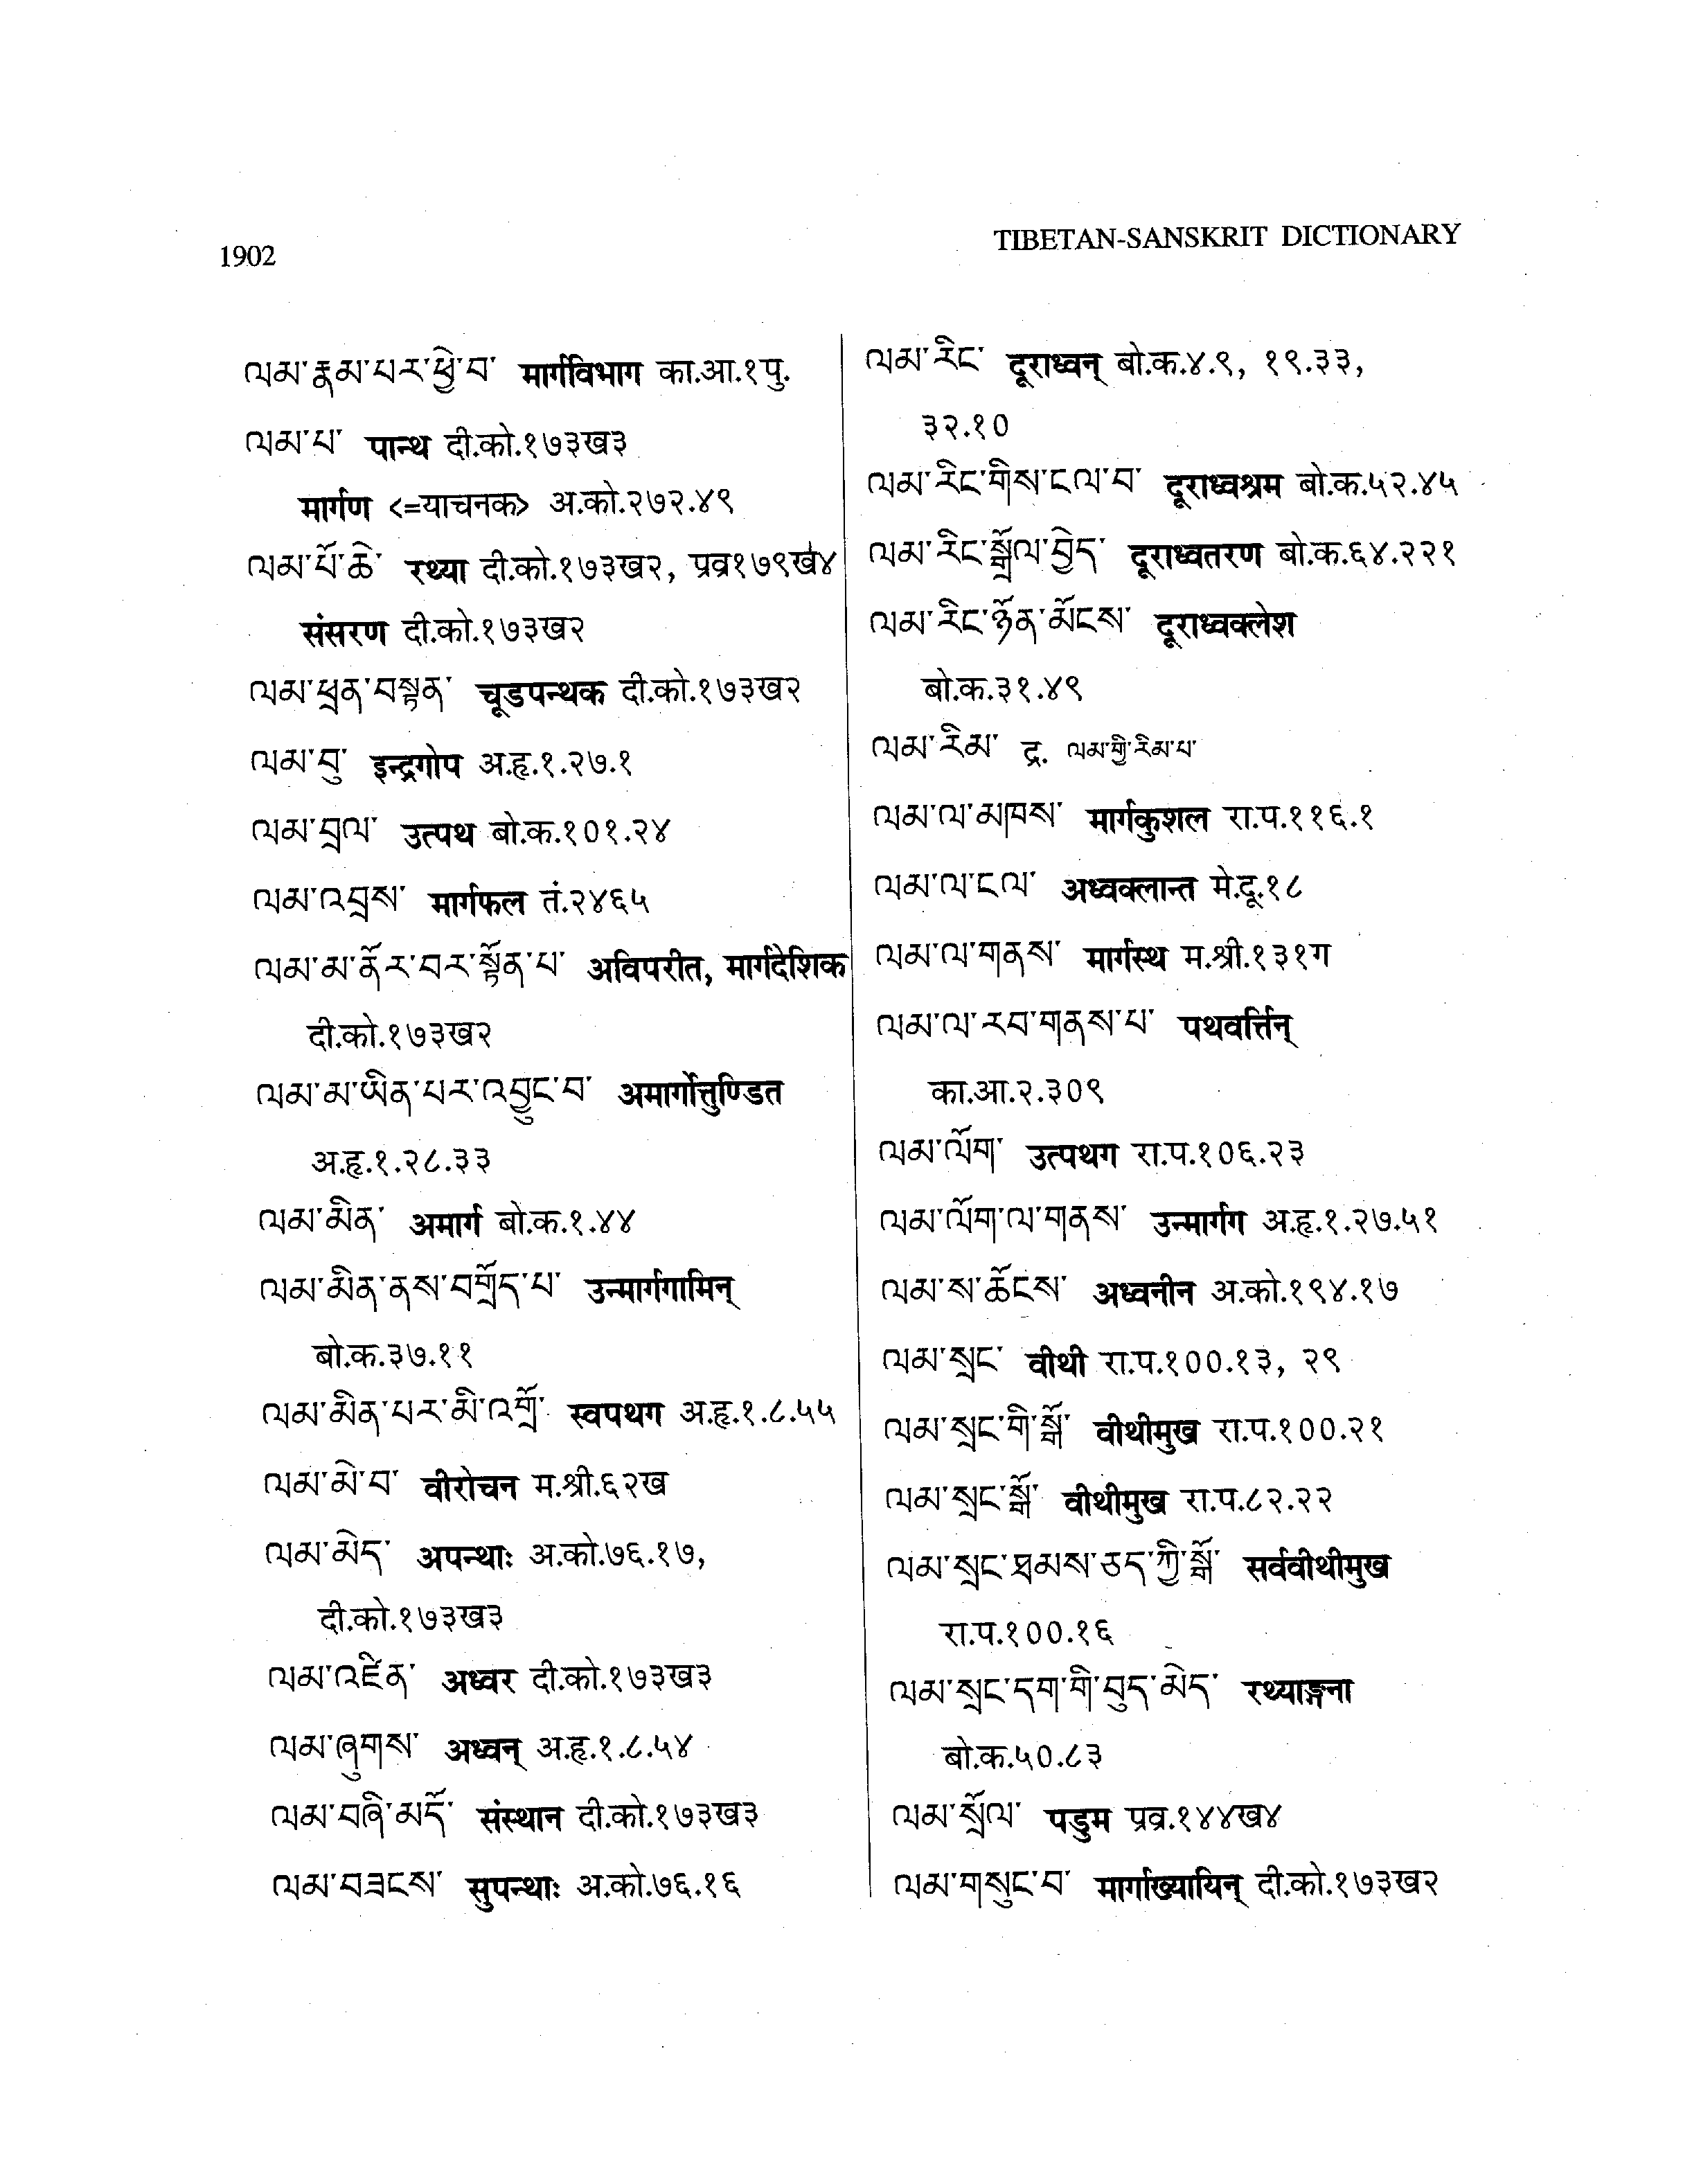 1902
TIBETAN-SANSKRIT DICTIONARY
ལམ་རྣམ་པར་ཕྱེ་བ་ मार्गविभाग का.आ.१पु.
ལམ་པ་ पान्थ दी.को.१७३ख३
मार्गण <=याचनक> अ.को.२७२.४९
ལམ་པོ་ཆེ་ रथ्या दी.को.१७३ख२, प्रव्र१७९ख४
संसरण दी.को.१७३ख२
ལམ་ཕྲན་བསྟན་ चूडपन्थक दी.को.१७३ख२
ལམ་བུ་ इन्द्रगोप अ.हृ.१.२७.१
ལམ་བྲལ་ उत्पथ बो.क.१०१.२४
ལམ་འབྲས་ मार्गफल तं.२४६५
ལམ་མ་ནོར་བར་སྟོན་པ་ अविपरीत, मार्गदेशिक
दी.को.१७३ख२
ལམ་མ་ཡིན་པར་འབྱུང་བ་ अमार्गोत्तुण्डित
अ.हृ.१.२८.३३
ལམ་མིན་ अमार्ग बो.क.१.४४
ལམ་མིན་ནས་བགྲོད་པ་ उन्मार्गगामिन्
बो.क.३७.११
ལམ་མིན་པར་མི་འགྲོ་ स्वपथग अ.हृ.१.८.५५
ལམ་མེ་བ་ वीरोचन म.श्री.६२ख
ལམ་མེད་ अपन्थाः अ.को.७६.१७,
दी.को.१७३ख३
ལམ་འཛིན་ अध्वर दी.को.१७३ख३
ལམ་ཞུགས་ अध्वन् अ.हृ.१.८.५४
ལམ་བཞི་མདོ་ संस्थान दी.को.१७३ख३
ལམ་བཟངས་ सुपन्थाः अ.को.७६.१६
ལམ་རིང་ दूराध्वन् बो.क.४.९, १९.३३,
३२.१०
ལམ་རིང་གིས་ངལ་བ་ दूराध्वश्रम बो.क.५२.४५
ལམ་རིང་སྒྲོལ་བྱེད་ दूराध्वतरण बो.क.६४.२२१
ལམ་རིང་ཉོན་མོངས་ दूराध्वक्लेश
बो.क.३१.४९
ལམ་རིམ་ द्र. ལམ་གྱི་རིམ་པ་
ལམ་ལ་མཁས་ मार्गकुशल रा.प.११६.१
ལམ་ལ་ངལ་ अध्वक्लान्त मे.दू.१८
ལམ་ལ་གནས་ मार्गस्थ म.श्री.१३१ग
ལམ་ལ་རབ་གནས་པ་ पथवर्त्तिन्
का.आ.२.३०९
ལམ་ལོག་ उत्पथग रा.प.१०६.२३
ལམ་ལོག་ལ་གནས་ उन्मार्गग अ.हृ.१.२७.५१
ལམ་ས་ཆོངས་ अध्वनीन अ.को.१९४.१७
ལམ་སྲང་ वीथी रा.प.१००.१३, २९
ལམ་སྲང་གི་སྒོ་ वीथीमुख रा.प.१००.२१
ལམ་སྲང་སྒོ་ वीथीमुख रा.प.८२.२२
ལམ་སྲང་ཐམས་ཅད་ཀྱི་སྒོ་ सर्ववीथीमुख
रा.प.१००.१६
ལམ་སྲང་དག་གི་བུད་མེད་ रथ्याङ्गना
बो.क.५०.८३
ལམ་སྲོལ་ पडुम प्रव्र.१४४ख४
ལམ་གསུང་བ་ मार्गाख्यायिन् दी.को.१७३ख२